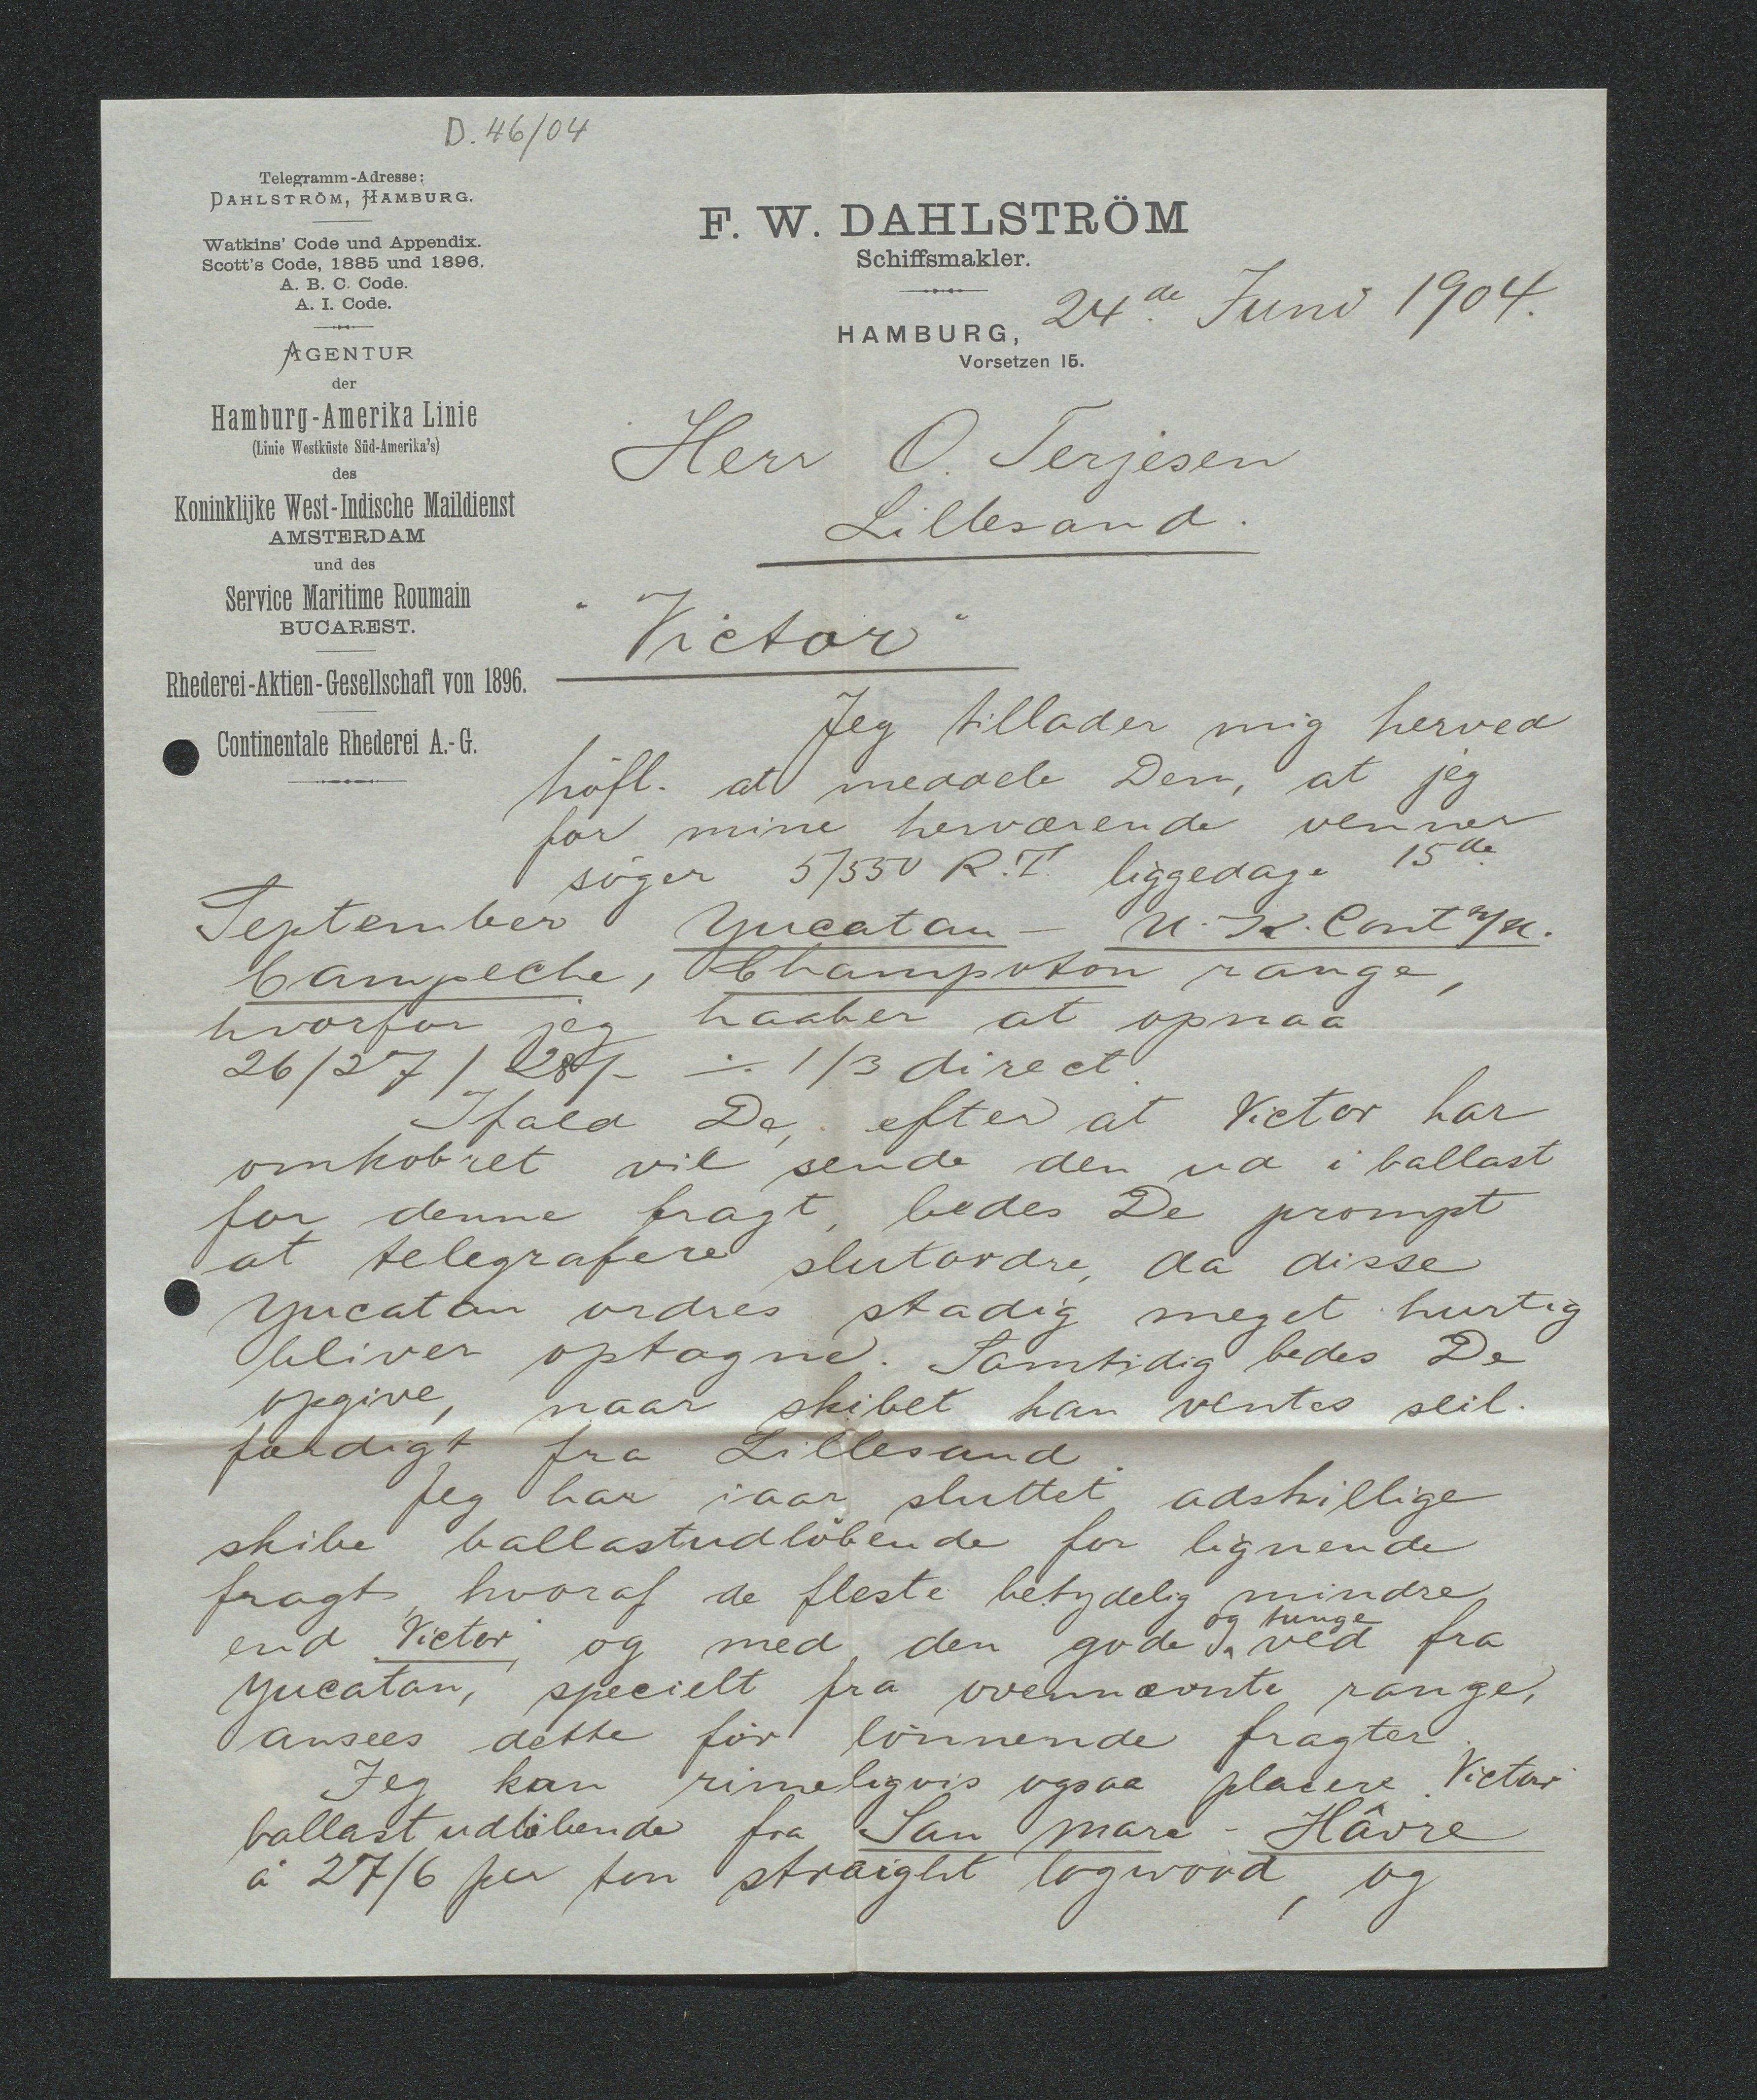 D. 46/04
Telegramm-Adresse:
DAHLSTRÖM, HAMBURG.
Watkins' Code und Appendix.
Scott's Code, 1885 und 1896.
A. B. C. Code.
A. I. Code.
AGENTUR
der
Hamburg-Amerika Linie
(Linie Westküste Süd-Amerika's)
des
Koninklijke West-Indische Maildienst
AMSTERDAM
und des
Service Maritime Roumain
BUCAREST.
Rhederei-Aktien-Gesellschaft von 1896.
Continentale Rhederei A.-G.
F. W. DAHLSTRÖM
Schiffsmakler.
HAMBURG, 24de Juni 1904.
Vorsetzen 15.
Herr O. Terjesen
Lillesand.
"Victor"
Jeg tillader mig herved
höfl. at meddele Dem, at jeg
for mine herværende venner
söger 5/550 R.T. liggedage 15de
September Yucatan - U.K. Cont
Campeche, Champoton range,
hvorfor jeg haaber at opnaa
26/27/28/- ÷ 1/3 direct.
Ifald De, efter at Victor har
omkobret vil sende den ud i ballast
for denne fragt, bedes De prompt
at telegrafere slutordre, da disse
Yucatan ordres stadig meget hurtig
bliver optagne. Samtidig bedes De
opgive, naar skibet kan ventes seil-
færdigt fra Lillesand.
Jeg har iaar sluttet adskillige
skibe ballastudlöbende for lignende
fragt, hvoraf de fleste betydelig mindre
end "Victor" og med den gode og tunge ved fra
Yucatan, specielt fra ovennævnte range,
ansees dette for lönnende fragter.
Jeg kan rimeligvis ogsaa placere Victor
ballastudlöbende fra San Marc - Hâvre
à 27/6 per ton straight logwood, og